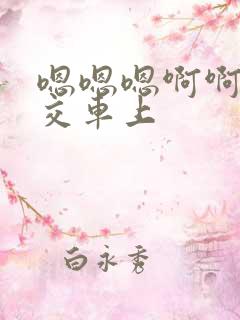 嗯嗯嗯啊啊
交車上
白永秀